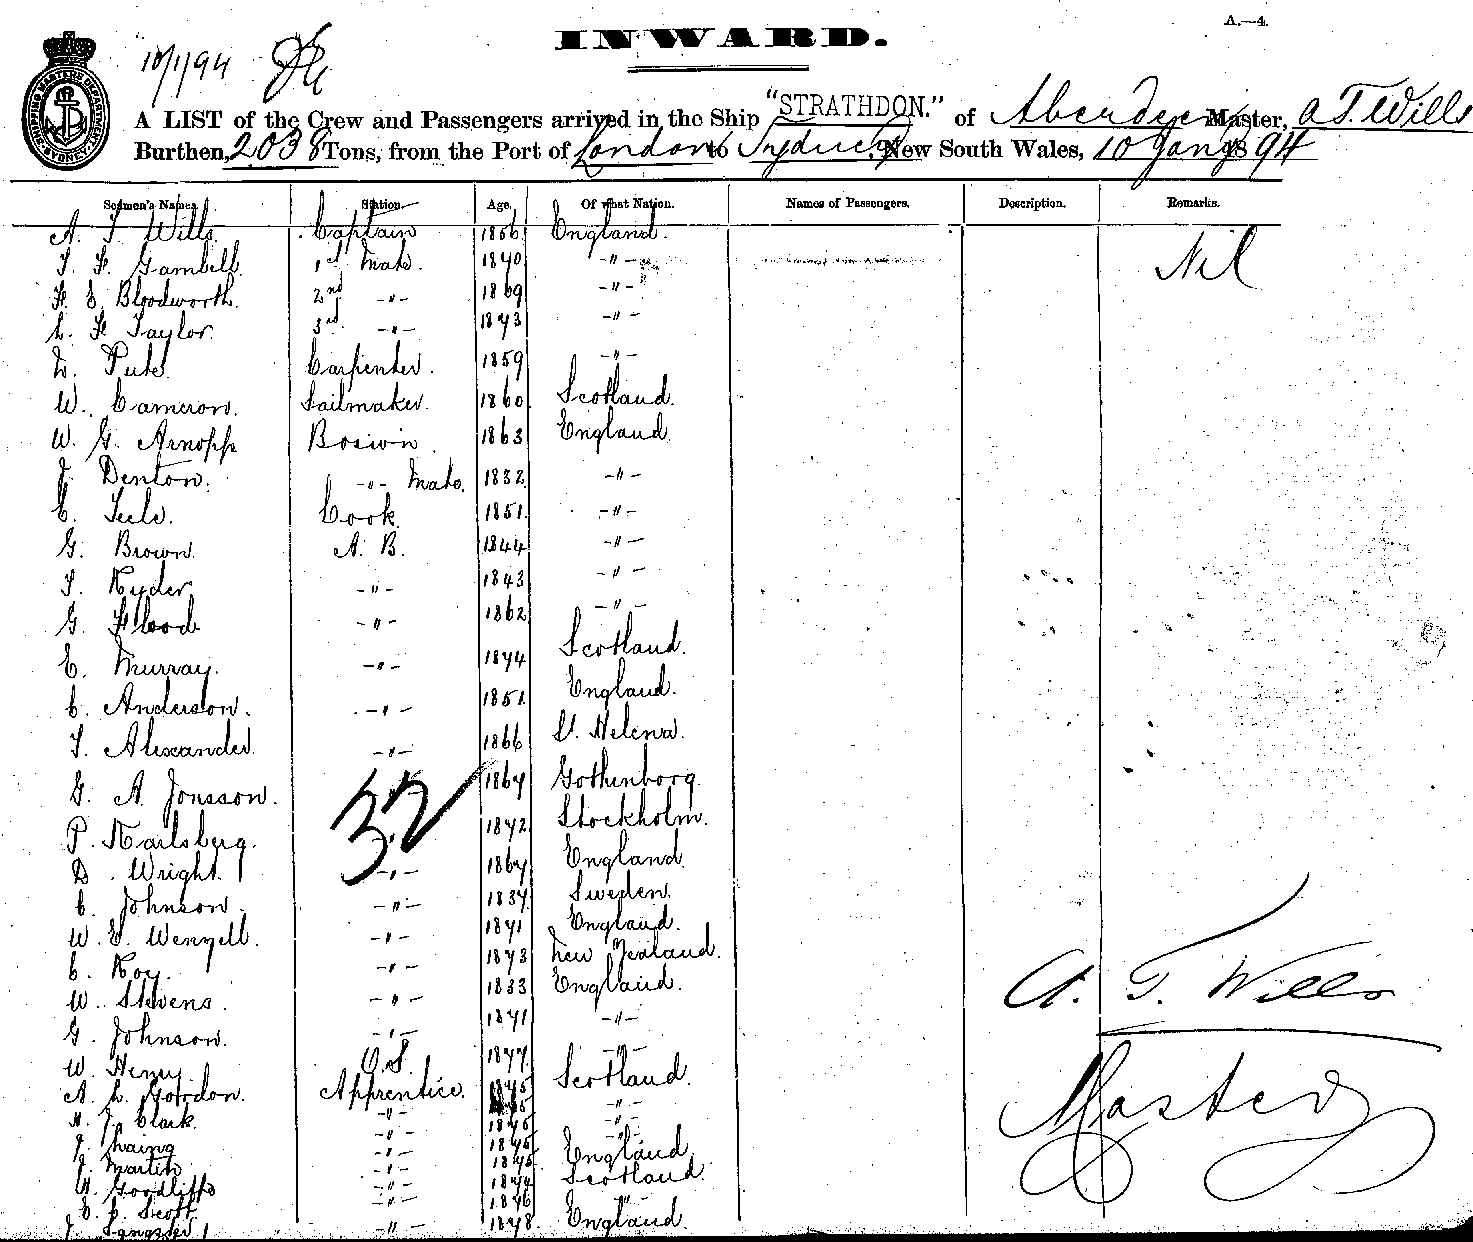 A.—4.
INWARD.
10/1/94
A LIST of the Crew and Passengers arrived in the Ship "STRATHDON." of Aberdeen Master, A T. Wills
Burthen, 2038 Tons, from the Port of London to Sydney, New South Wales, 10 Jany 1894
Seamen's Names. Station. Age. Of what Nation. Names of Passengers. Description. Remarks.
A. T. Wills Captain 1856 England. Nil
T. F. Gambell 1st Mate. 1840 -"-
F. E. Bloodworth. 2nd -"- 1869 -"-
L. F. Taylor. 3rd -"- 1873 -"-
Carpenter. 1859 -"-
W. Cameron. Sailmaker. 1860 Scotland.
W. G. Arnopp Boswin 1863 England.
J. Denton. -"- Mate. 1832 -"-
C. Cook 1851 -"-
G. Brown A. B. 1844 -"-
T. Ryder -"- 1843 -"-
G. Flood -"- 1862 -"-
C. Murray. -"- 1874 Scotland.
C. Anderson. -"- 1851 England.
T. Alexander. -"- 1866 St. Helena.
G. A. Jonsson. 1867 Gothenborg.
P. Karlsberg. 1872 Stockholm.
D. Wright -"- 1867 England.
C. Johnson. -"- 1837 Sweden.
W. E. Wenzell. -"- 1871 England.
C. Roy. -"- 1873 New Zealand.
W. Stevens. -"- 1833 England.
G. Johnson. -"- 1871 -"-
W. Henry O.S. 1877 -"-
A. L. Gordon. Apprentice. 1875 Scotland.
H. J. Clark. -"- 1875 -"-
J. Laing -"- 1875 -"-
J. Martin -"- 1875 England.
H. Goodliffe -"- 1874 Scotland.
E. C. Scott. -"- 1876 -"-
J. Sangster -"- 1878 England.
32
A. T. Wills
Master